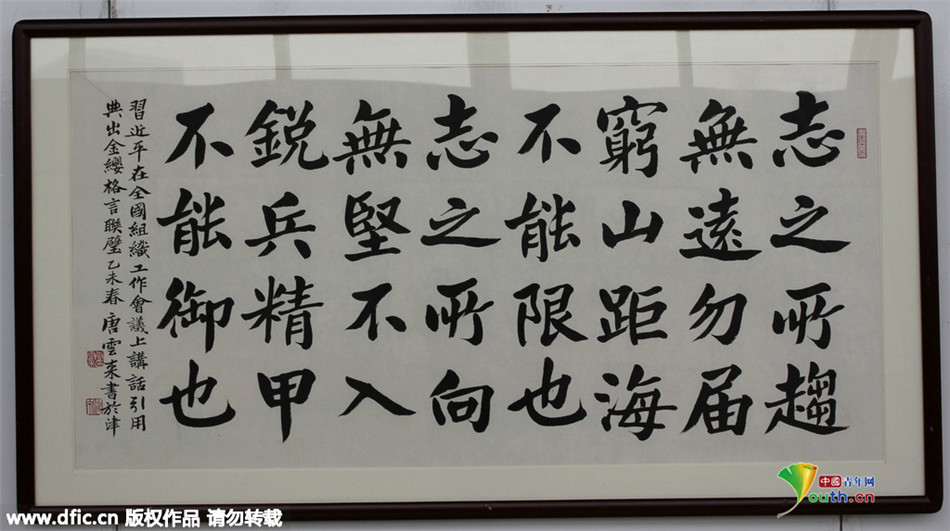 志之所趨
無遠勿届
窮山距海
不能限也
志之所向
無堅不入
鋭兵精甲
不能御也
習近平在全國組織工作會議上講話引用
典出金纓格言聯璧乙未春唐雲来書於津
www.dfic.cn 版权作品 请勿转载
中國青年网
Youth.cn